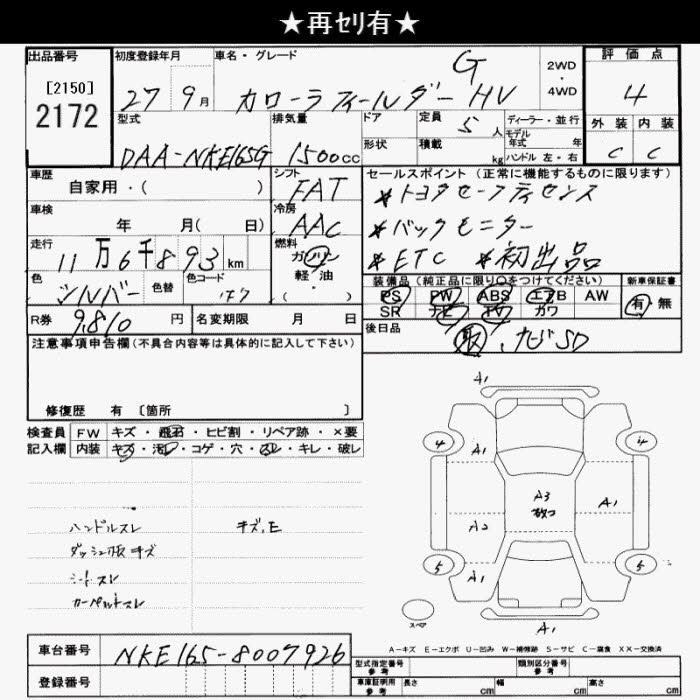 ★再ｾﾘ有★
出品番号 初度登録年月 車名・グレード G 2WD・4WD 評価点
[2150] 2172 27 9月 カローラフィールダー HV 4
型式 排気量 ドア 定員 5人 ディーラー・並行 外装 内装
DAA-NKE165G 1500cc 形状 積載 kg モデル年式 年 ハンドル 左・右 C C
車歴 シフト セールスポイント(正常に機能するものに限ります)
自家用・( ) FAT *トヨタセーフティセンス
車検 冷房 *バックモニター
年 月( 日) AAC *ETC *初出品
走行 11万6千893km 燃料 ガソリン 軽・油 ( )
装備品(純正品に限り○をつけてください) 新車保証書
色 シルバー 色替 色コード 1F7
PS PW ABS エアB AW 有 無
SR ナビ TV カワ
R券 9,810円 名変期限 月 日
後日品 取、ナビSD
注意事項申告欄(不具合内容等は具体的に記入して下さい)
修復歴 有 [箇所 ]
検査員 FW キズ・飛石・ヒビ割・リペア跡・×要
記入欄 内装 キズ・汚レ・コゲ・穴・スレ・キレ・破レ
ハンドルスレ キズ、E
ダッシュ板キズ
シートスレ
カーペットスレ
A1
4 A1 4
A3
A1
A2
5 A1 5
スペア
A1
A-キズ E-エクボ U-凹み W-補修跡 S-サビ C-腐食 XX-交換済
車台番号 NKE165-8007926
型式指定番号 参考 類別区分番号 参考
登録番号 車庫証明用 参考 長さ cm 幅 cm 高さ cm